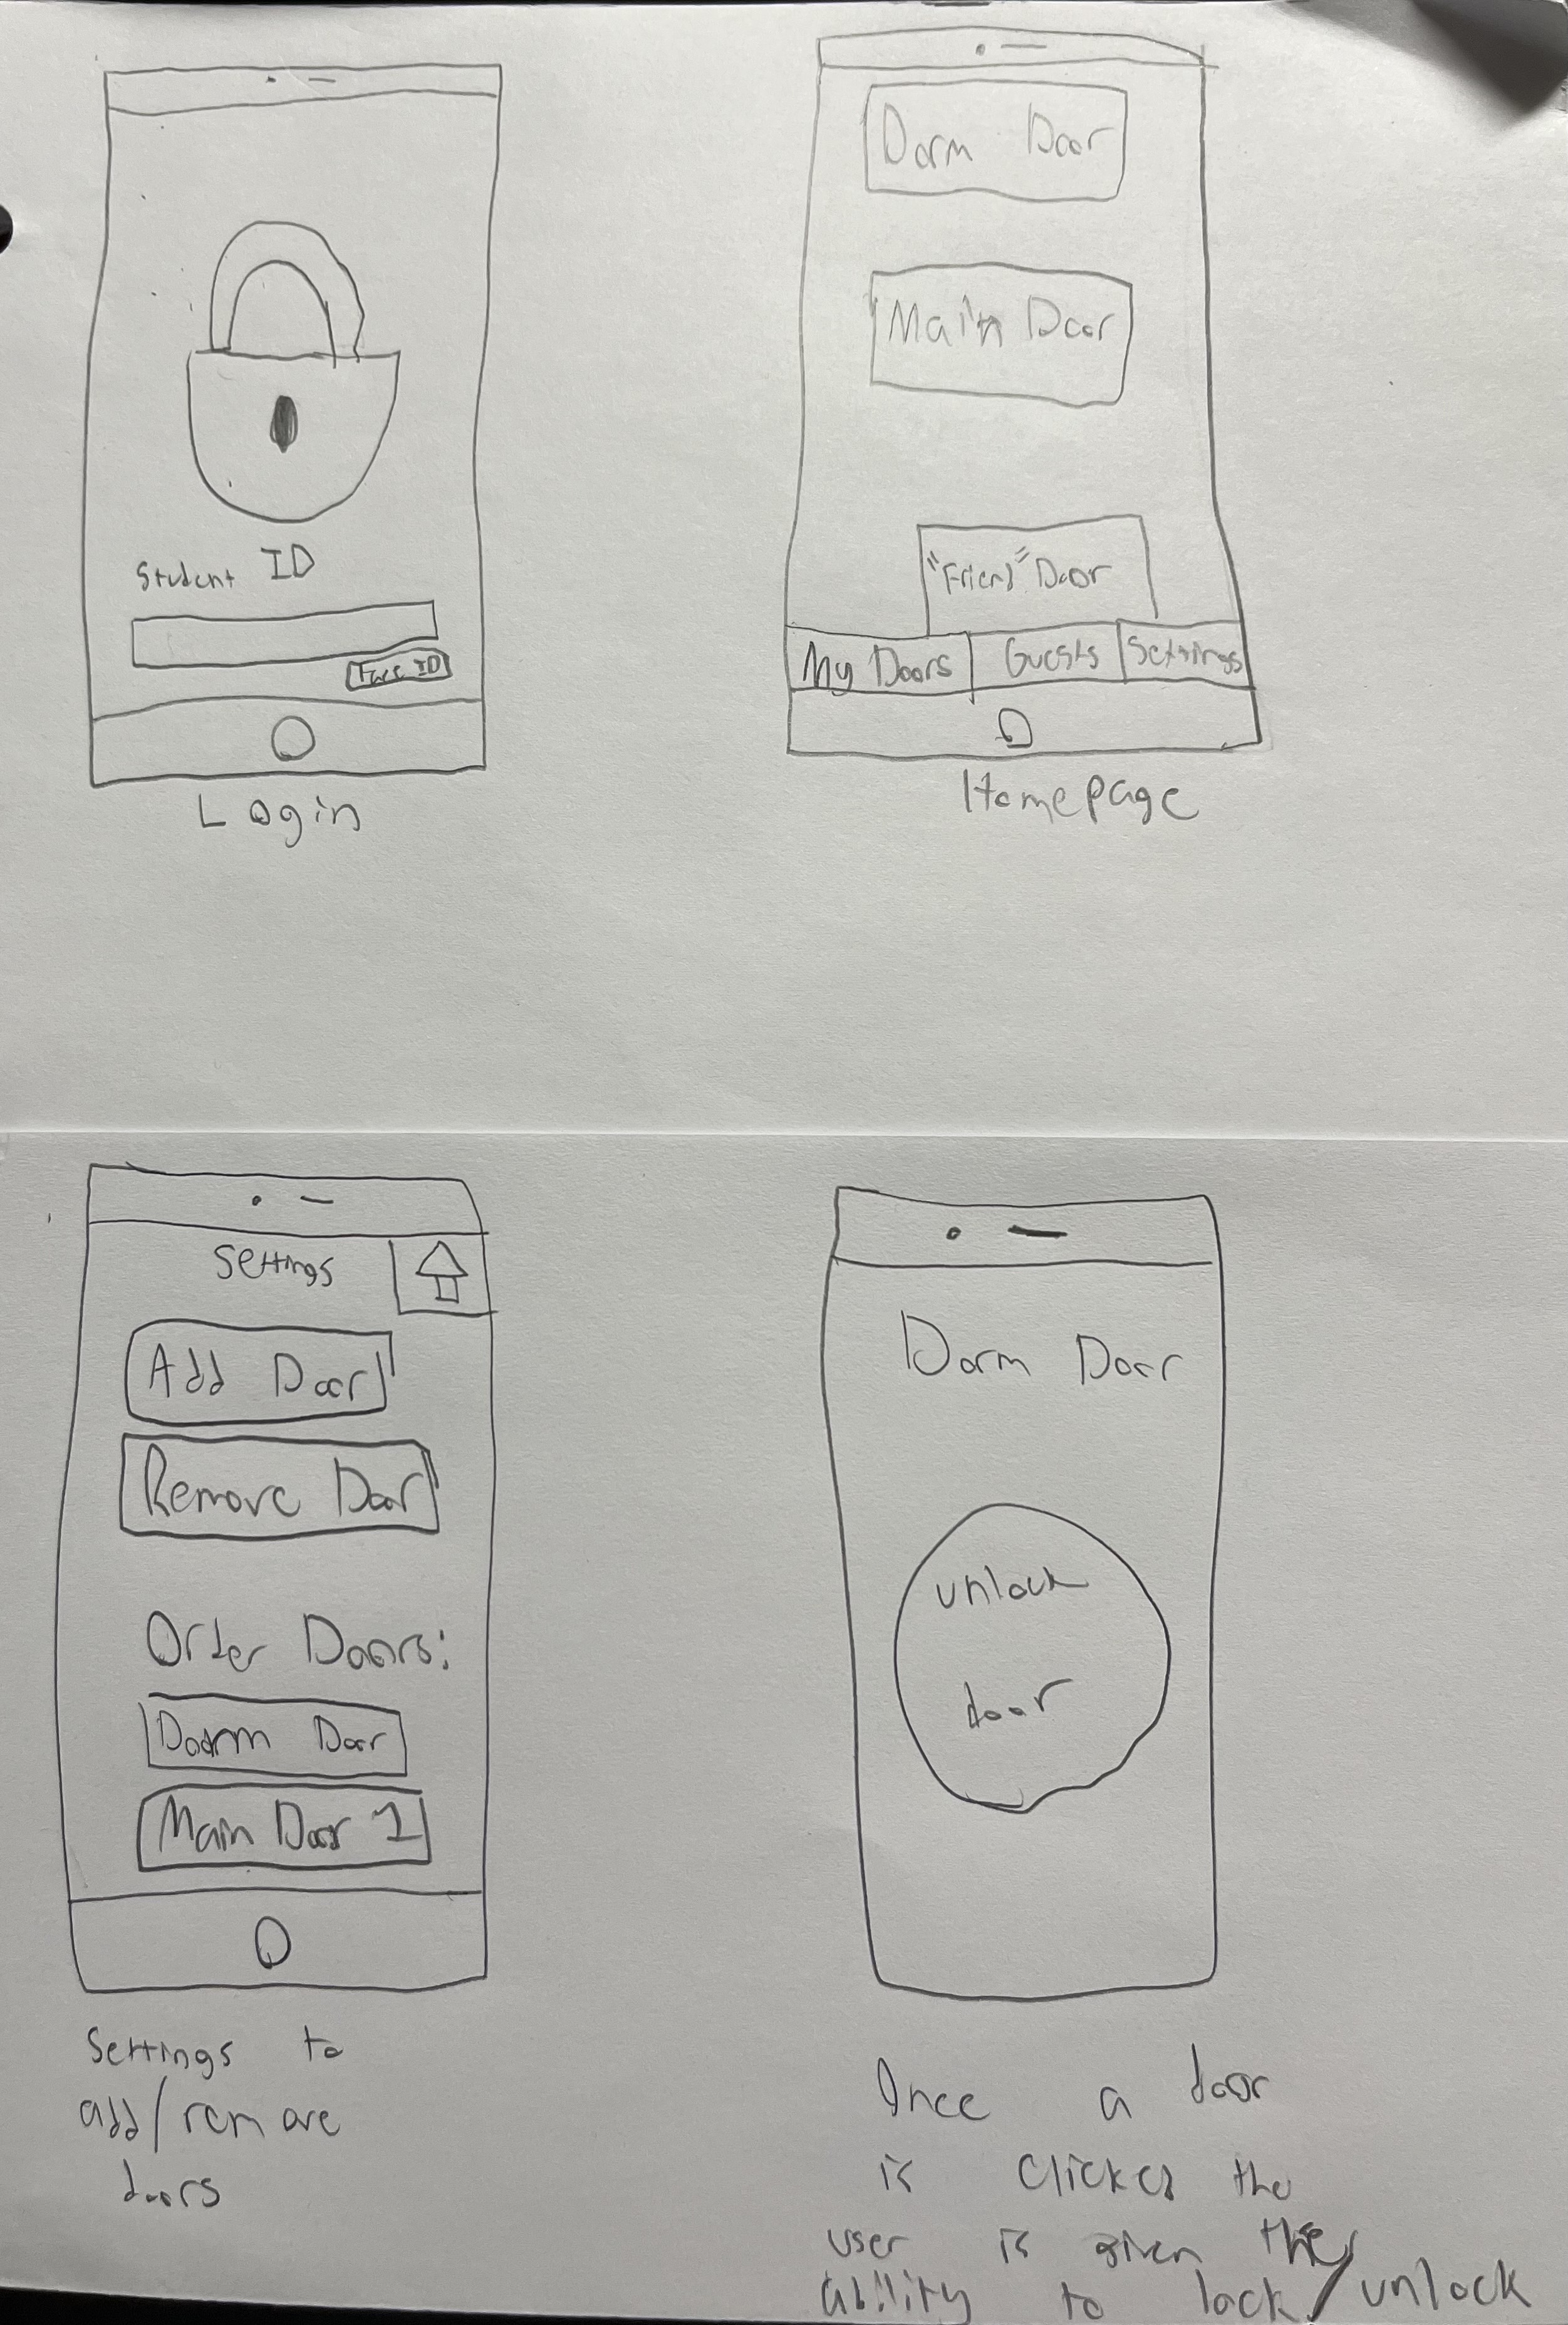 Student ID
Face ID
Login
Dorm Door
Main Door
"Friend" Door
My Doors
Guests
Settings
Homepage
Settings
Add Door
Remove Door
Order Doors:
Doorm Door
Main Door 1
Settings to
add/remove
doors
Dorm Door
unlock
door
Once a door
is clicked the
user is given the
ability to lock/unlock